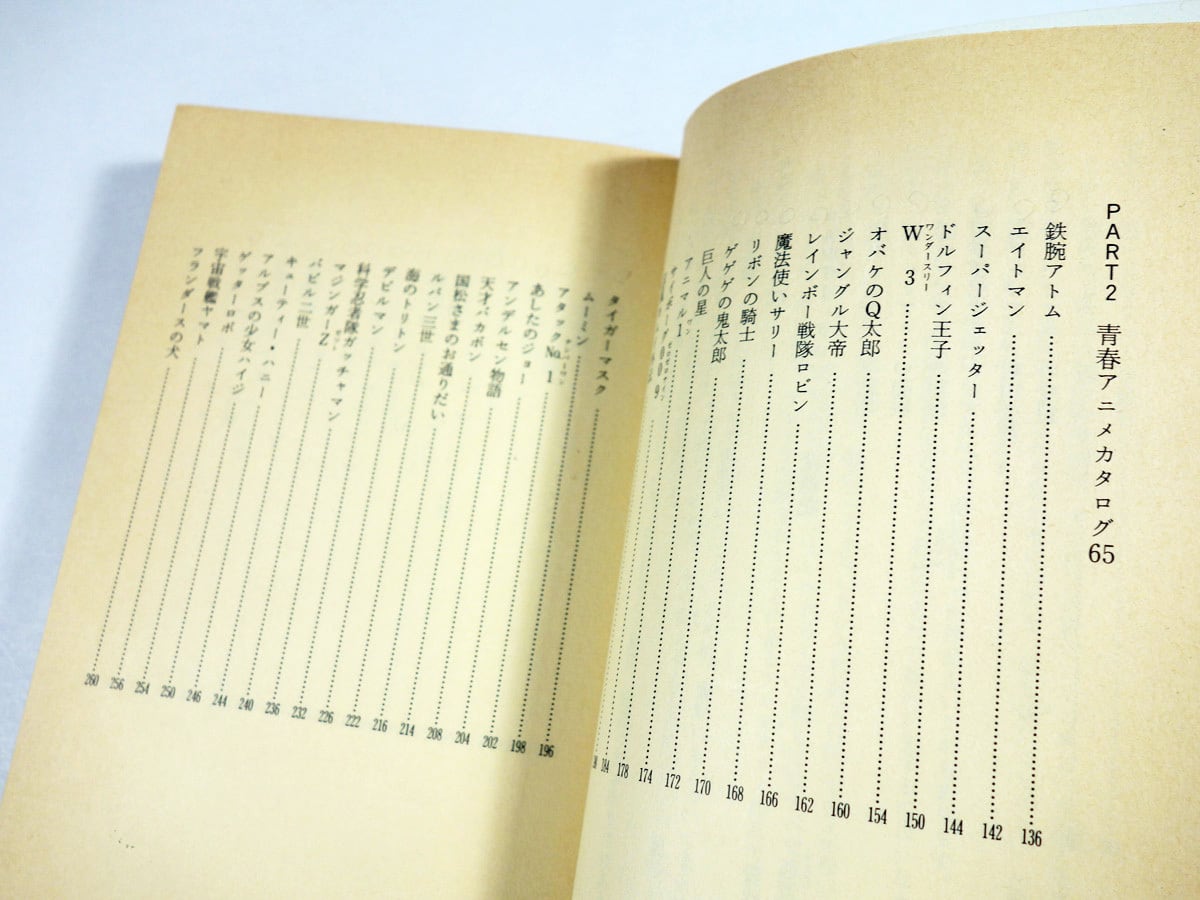 PART2 青春アニメカタログ65
鉄腕アトム 136
エイトマン 142
スーパージェッター 144
ドルフィン王子 150
W3 ワンダースリー 154
オバケのQ太郎 160
ジャングル大帝 162
レインボー戦隊ロビン 166
魔法使いサリー 168
リボンの騎士 170
ゲゲゲの鬼太郎 172
巨人の星 174
アニマル1 ワン 178
サイボーグ009 ゼロゼロナイン 184
タイガーマスク 196
ムーミン 198
アタックNo.1 ナンバーワン 202
あしたのジョー 204
アンデルセン物語 208
天才バカボン 214
国松さまのお通りだい 216
ルパン三世 222
海のトリトン 226
デビルマン 232
科学忍者隊ガッチャマン 236
マジンガーZ ゼット 240
バビル二世 244
キューティー・ハニー 246
アルプスの少女ハイジ 250
ゲッターロボ 254
宇宙戦艦ヤマト 256
フランダースの犬 260